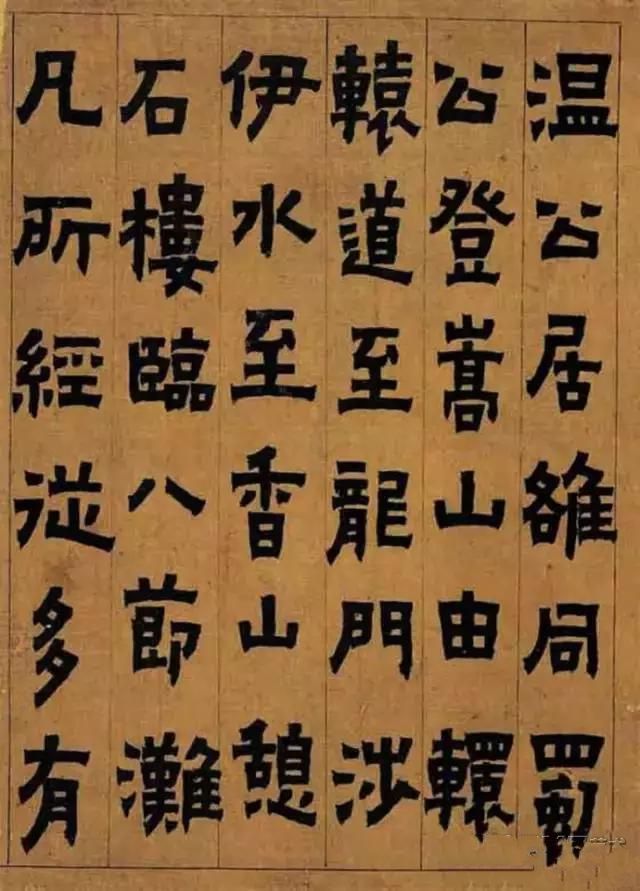 温公居雒同蜀
公登嵩山由轘
轅道至龍門涉
伊水至香山憩
石樓臨八節灘
凡所經從多有